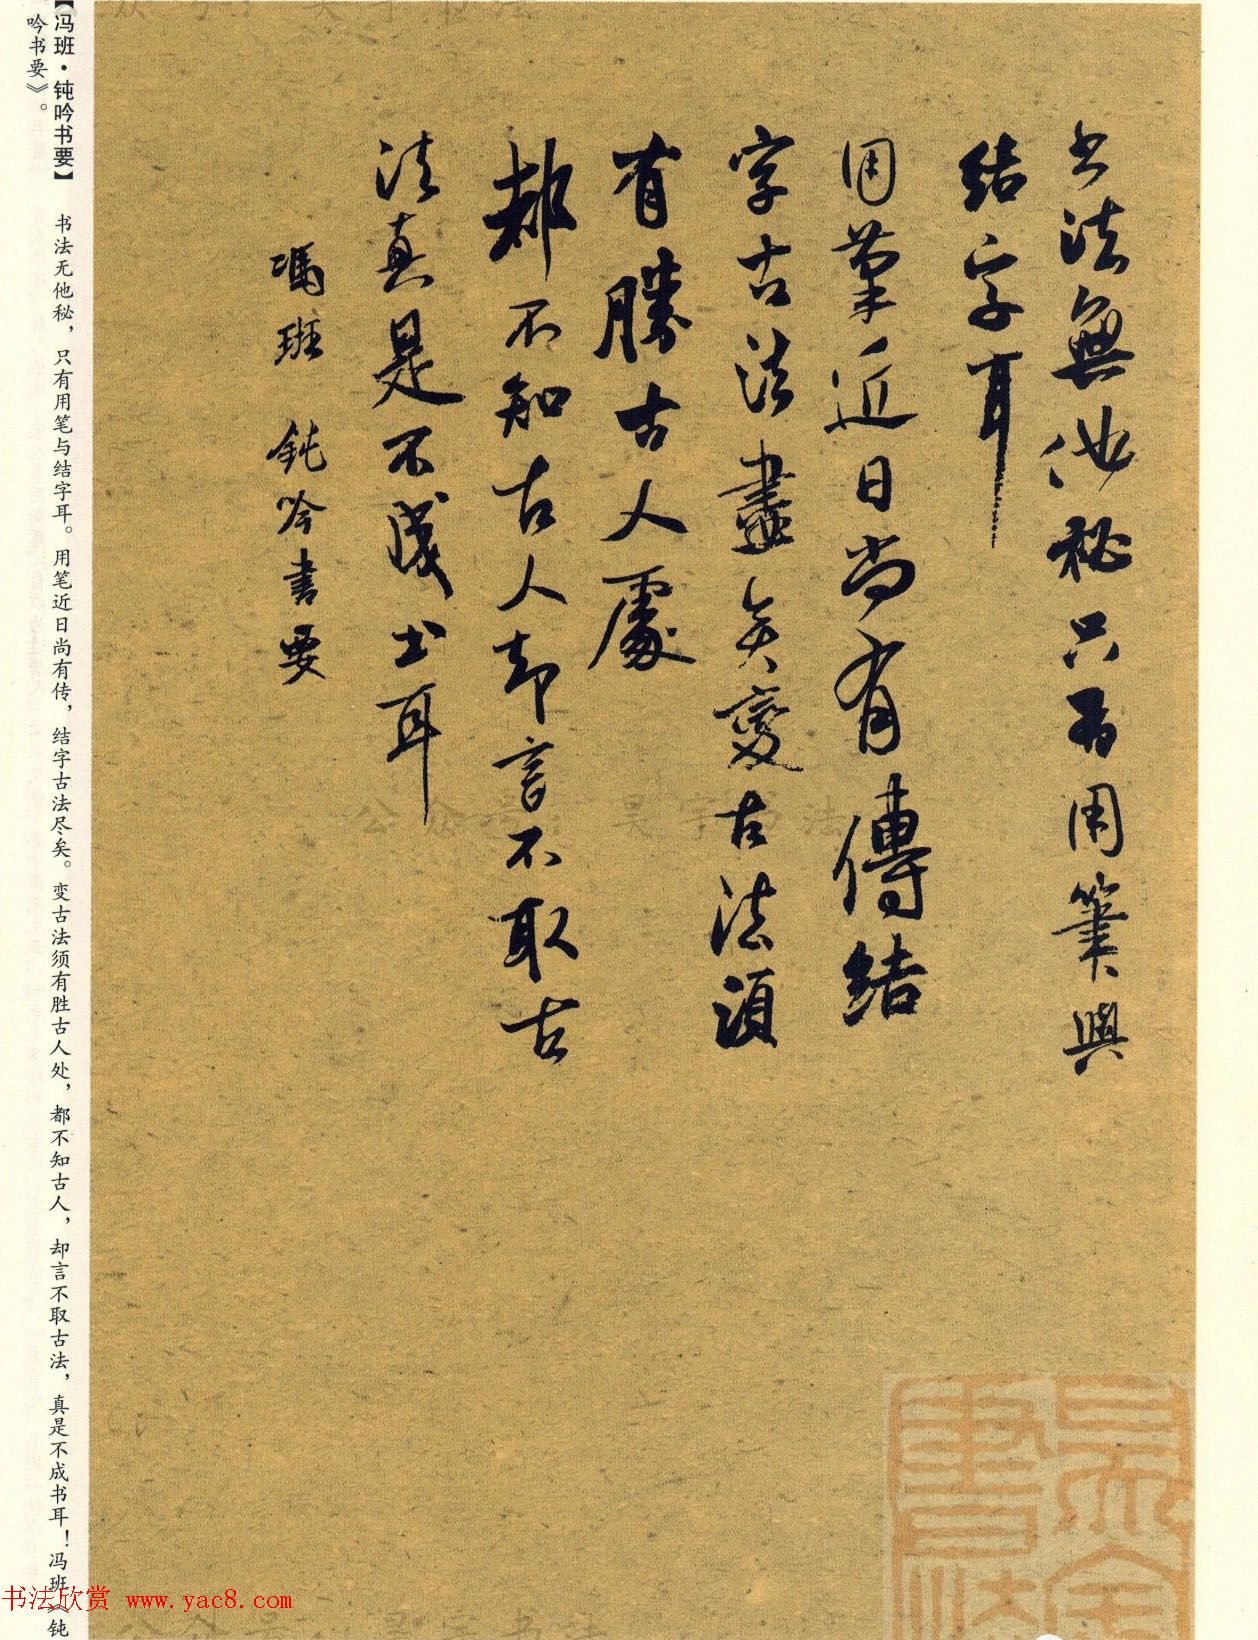 书法無他秘只有用筆與
结字耳
用筆近日尚有傳结
字古法盡矣變古法須
有勝古人處
都不知古人却言不取古
法真是不成书耳
馮班 鈍吟書要
【冯班·钝吟书要】 书法无他秘，只有用笔与结字耳。用笔近日尚有传，结字古法尽矣。变古法须有胜古人处，都不知古人，却言不取古法，真是不成书耳！冯班《钝
吟书要》。
公众号：吴宇书法
书法欣赏 www.yac8.com